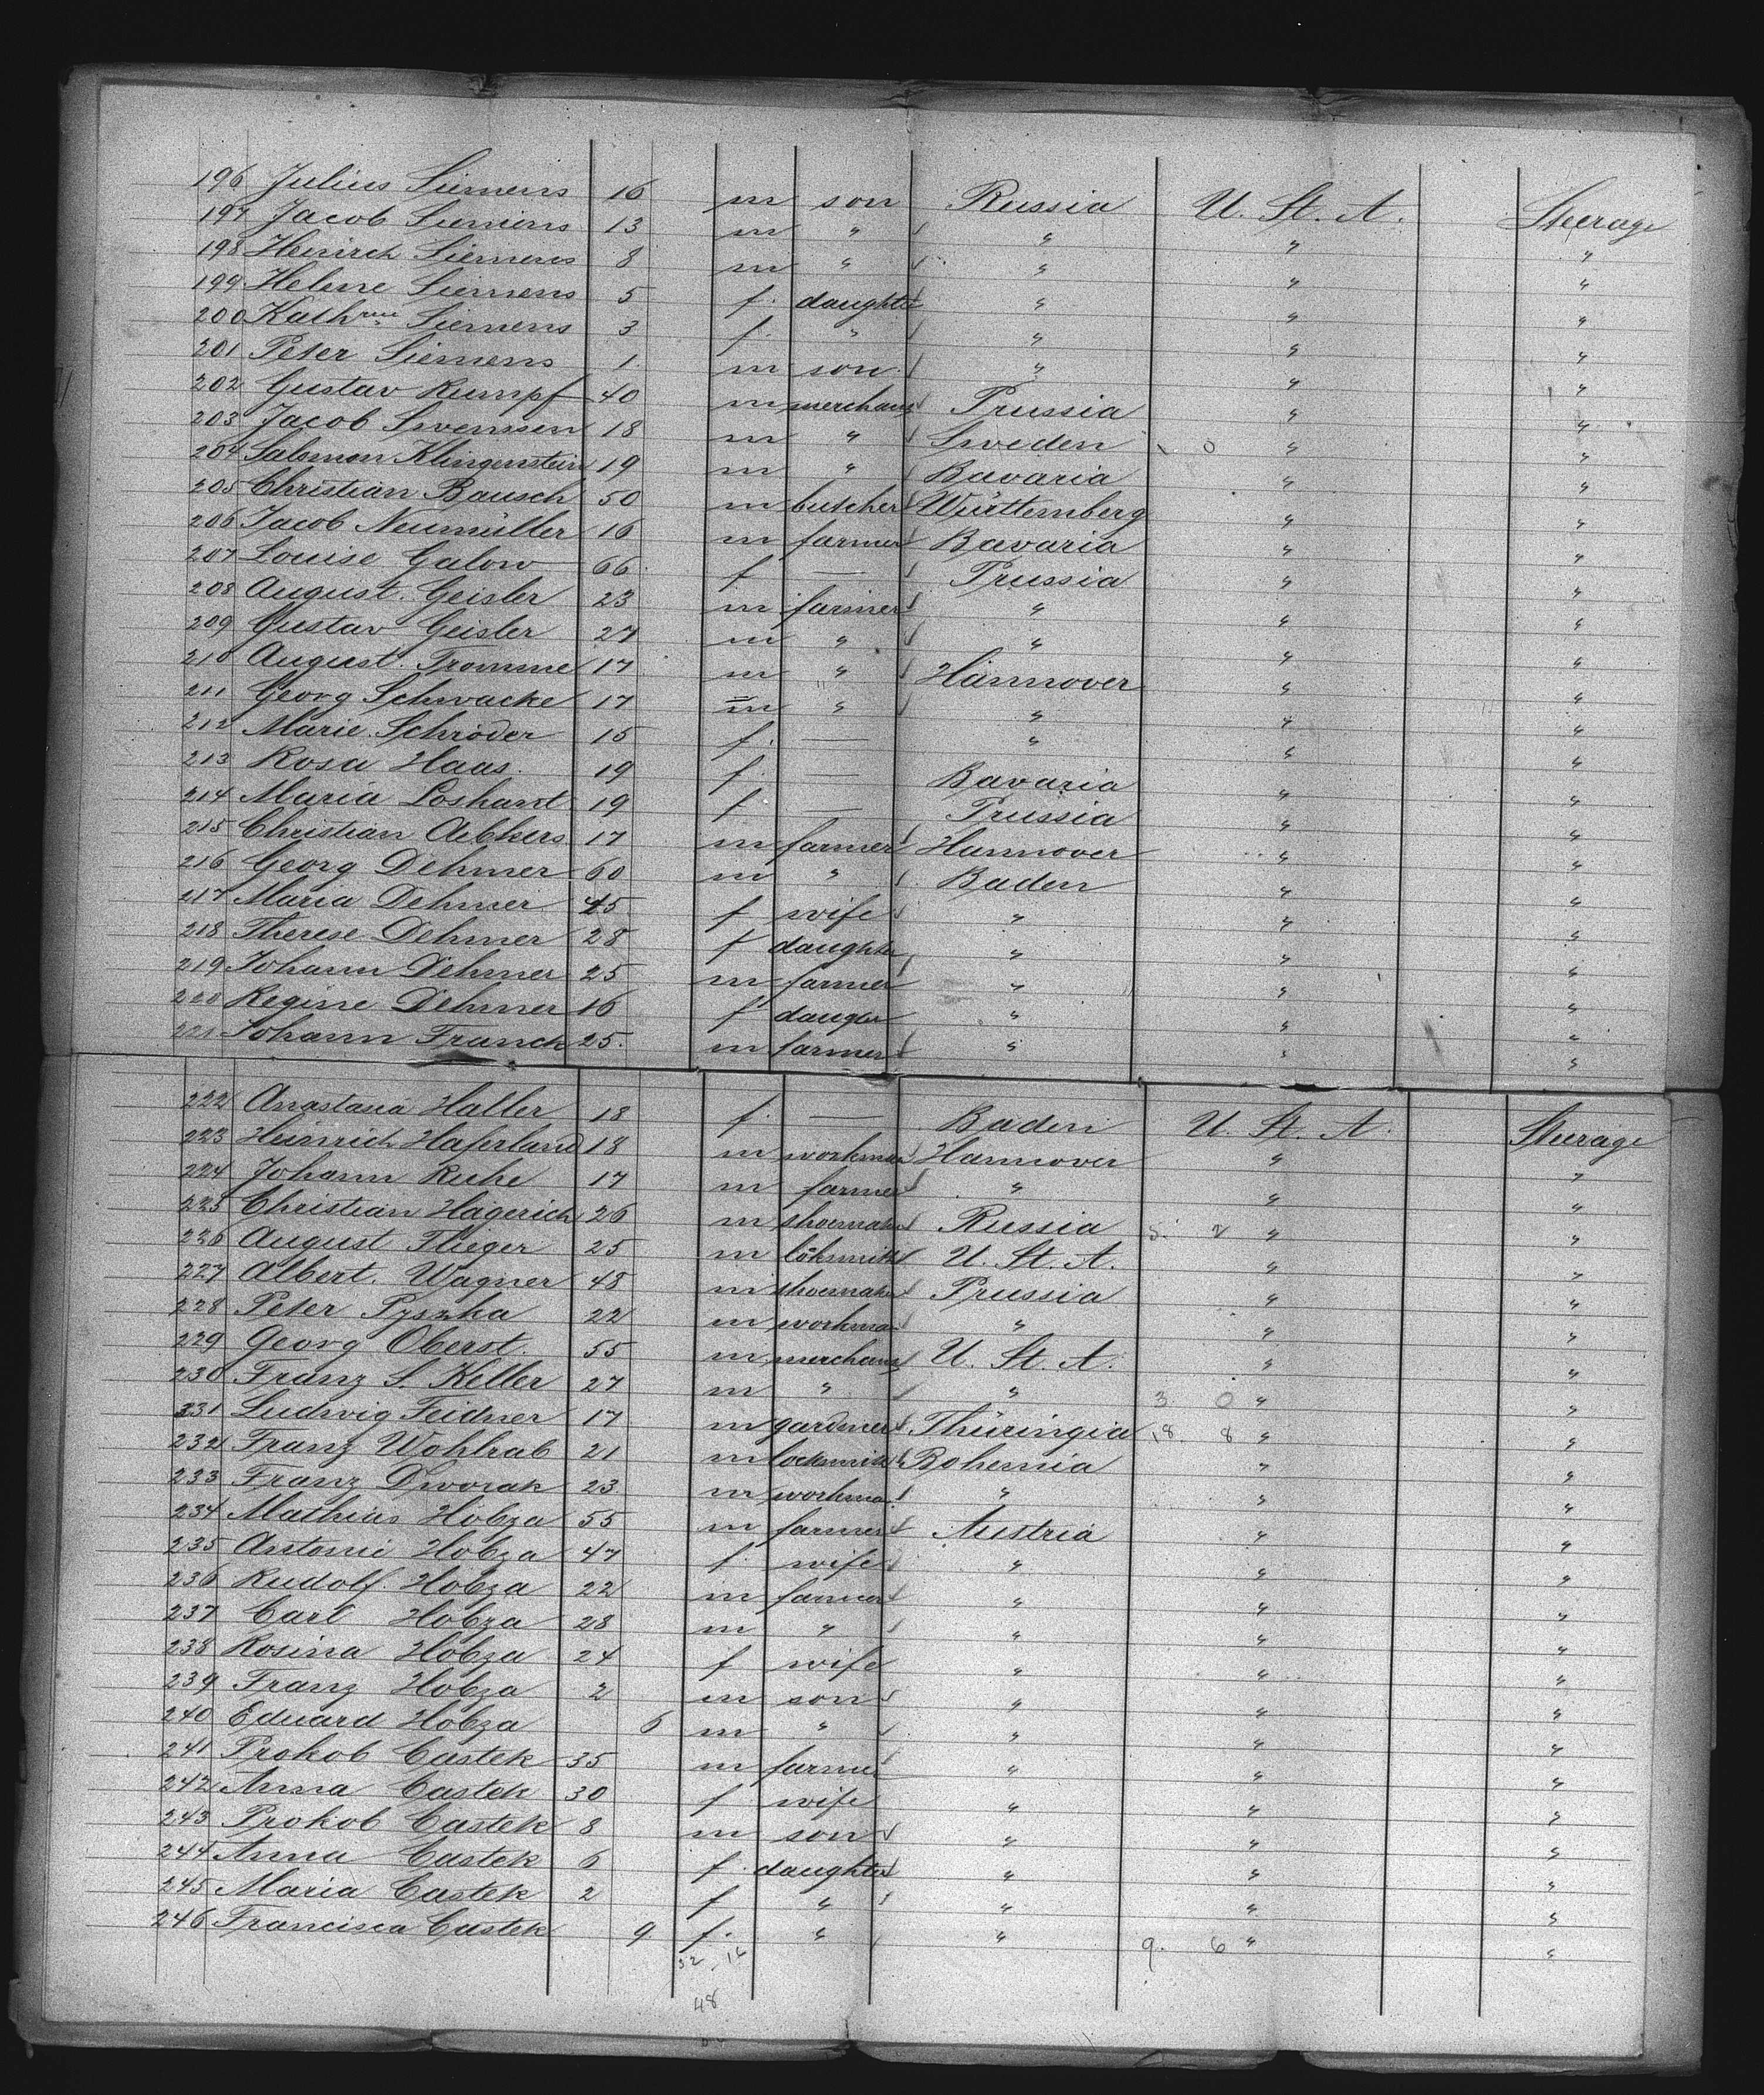 196 Julius Siemens 16 m son Russia U. St. A. Steerage
197 Jacob Siemens 13 m " " " "
198 Heinrich Siemens 8 m " " " "
199 Helene Siemens 5 f. daughter " " "
200 Kathrne Siemens 3 f. " " " "
201 Peter Siemens 1 m son " " "
202 Gustav Rumpf 40 m merchant Prussia " "
203 Jacob Swenssen 18 m " Sweden 0 " "
204 Salomon Klingenstein 19 m " Bavaria " "
205 Christian Bausch 50 m butcher Württemberg " "
206 Jacob Neumüller 16 m farmer Bavaria " "
207 Louise Galow 66 f — Prussia " "
208 August Geisler 23 m farmer " " "
209 Gustav Geisler 27 m " " " "
210 August Fromme 17 m " Hannover " "
211 Georg Schwacke 17 m " " " "
212 Marie Schröder 15 f. — " " "
213 Rosa Haas. 19 f. — Bavaria " "
214 Maria Loshant 19 f — Prussia " "
215 Christian Aebkers 17 m farmer Hannover " "
216 Georg Dehmer 60 m " Baden " "
217 Maria Dehmer 45 f wife " " "
218 Therese Dehmer 28 f daughter " " "
219 Johann Dehmer 25 m farmer " " "
220 Regine Dehmer 16 f daugter " " "
221 Johann Franck 25. m farmer " " "
222 Anastasia Haller 18 f. — Baden U. St. A. Steerage
223 Heinrich Haferland 18 m workman Hannover " "
224 Johann Ruhe 17 m farmer " " "
225 Christian Hagerich 26 m shoemaker Russia 5. 2 " "
226 August Flieger 25 m löksmith U. St. A. " "
227 Albert Wagner 48 m shoemaker Prussia " "
228 Peter Pyszka 22 m workman " " "
229 Georg Oberst. 55 m merchant U. St. A. " "
230 Franz S. Keller 27 m " " 3 0 " "
231 Ludwig Feidner 17 m gardener Thüringia 18. 8 " "
232 Franz Wohlrab 21 m locksmith Bohemia " "
233 Franz Dworak 23 m workman " " "
234 Mathias Hobza 55 m farmer Austria " "
235 Antonie Hobza 47 f. wife " " "
236 Rudolf Hobza 22 m farmer " " "
237 Carl Hobza 28 m " " " "
238 Rosina Hobza 24 f wife " " "
239 Franz Hobza 2 m son " " "
240 Eduard Hobza 6 m " " " "
241 Prokob Castek 35 m farmer " " "
242 Anna Castek 30 f wife " " "
243 Prokob Castek 8 m son " " "
244 Anna Castek 6 f. daughter " " "
245 Maria Castek 2 f " " " "
246 Francisca Castek 9 f. " " 9. 6 " "
32 - 16
48